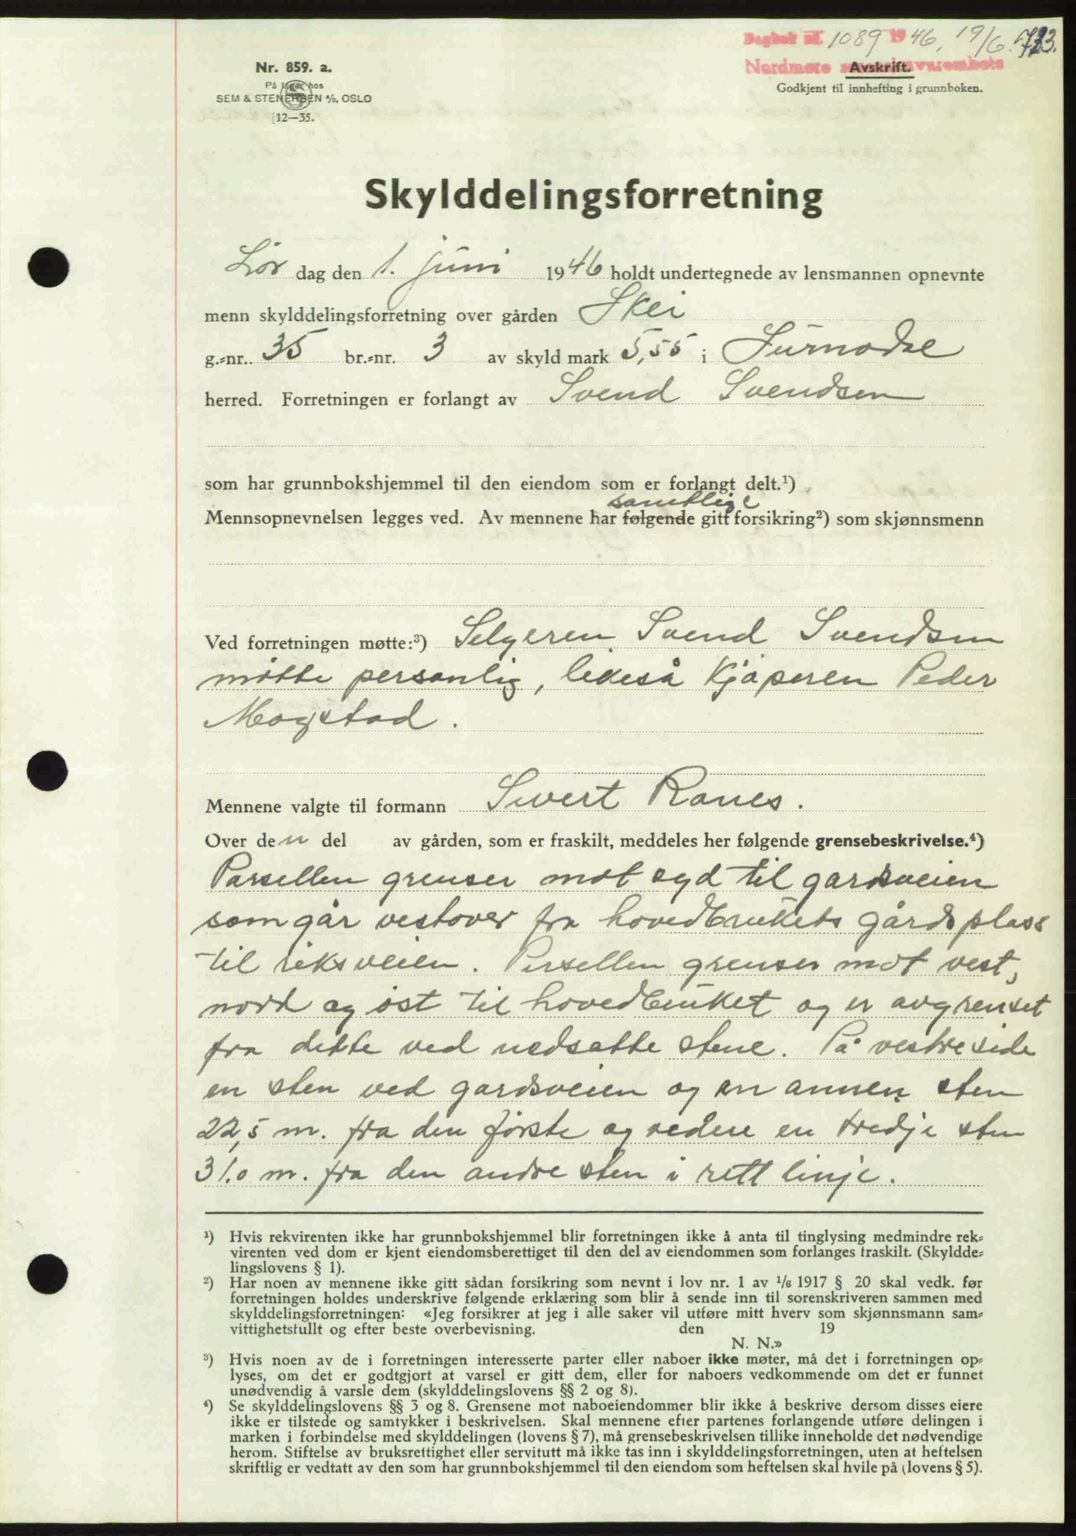 Dagbok nr. 1089 1946, 19/6 733.
Nordmøre sorenskriverembete
Avskrift.
Godkjent til innhefting i grunnboken.
Nr. 859. a.
På lager hos
SEM & STENERSEN A/S, OSLO
12—35.
Skylddelingsforretning
Lør dag den 1. juni 1946 holdt undertegnede av lensmannen opnevnte
menn skylddelingsforretning over gården Skei
g.-nr. 35 br.-nr. 3 av skyld mark 5,55 i Surnadal
herred. Forretningen er forlangt av Svend Svendsen
som har grunnbokshjemmel til den eiendom som er forlangt delt.¹)
samtlige
Mennsopnevnelsen legges ved. Av mennene har følgende gitt forsikring²) som skjønnsmenn
Ved forretningen møtte:³) Selgeren Svend Svendsen
møtte personlig, likeså kjøperen Peder
Mogstad.
Mennene valgte til formann Sivert Ranes.
Over den del av gården, som er fraskilt, meddeles her følgende grensebeskrivelse.⁴)
Parsellen grenser mot syd til gardsveien
som går vestover fra hovedbrukets gårdsplass
til riksveien. Parsellen grenser mot vest,
nord og øst til hovedbruket og er avgrenset
fra dette ved nedsatte stene. På vestre side
en sten ved gardsveien og en annen sten
22,5 m. fra den første og videre en tredje sten
31.0 m. fra den andre sten i rett linje.
¹) Hvis rekvirenten ikke har grunnbokshjemmel blir forretningen ikke å anta til tinglysing medmindre rek-
virenten ved dom er kjent eiendomsberettiget til den del av eiendommen som forlanges fraskilt. (Skyldde-
lingslovens § 1).
²) Har noen av mennene ikke gitt sådan forsikring som nevnt i lov nr. 1 av 1/6 1917 § 20 skal vedk. før
forretningen holdes underskrive følgende erklæring som blir å sende inn til sorenskriveren sammen med
skylddelingsforretningen: «Jeg forsikrer at jeg i alle saker vil utføre mitt hverv som skjønnsmann sam-
vittighetsfullt og efter beste overbevisning. den 19
N. N.»
³) Hvis noen av de i forretningen interesserte parter eller naboer ikke møter, må det i forretningen op-
lyses, om det er godtgjort at varsel er gitt dem, eller for naboers vedkommende om det er funnet
unødvendig å varsle dem (skylddelingslovens §§ 2 og 8).
⁴) Se skylddelingslovens §§ 3 og 8. Grensene mot naboeiendommer blir ikke å beskrive dersom disses eiere
ikke er tilstede og samtykker i beskrivelsen. Skal mennene efter partenes forlangende utføre delingen i
marken i forbindelse med skylddelingen (lovens § 7), må grensebeskrivelsen tillike inneholde det nødvendige
herom. Stiftelse av bruksrettighet eller servitutt må ikke tas inn i skylddelingsforretningen, uten at heftelsen
skriftlig er vedtatt av den som har grunnbokshjemmel til den eiendom som heftelsen skal hvile på (lovens § 5).